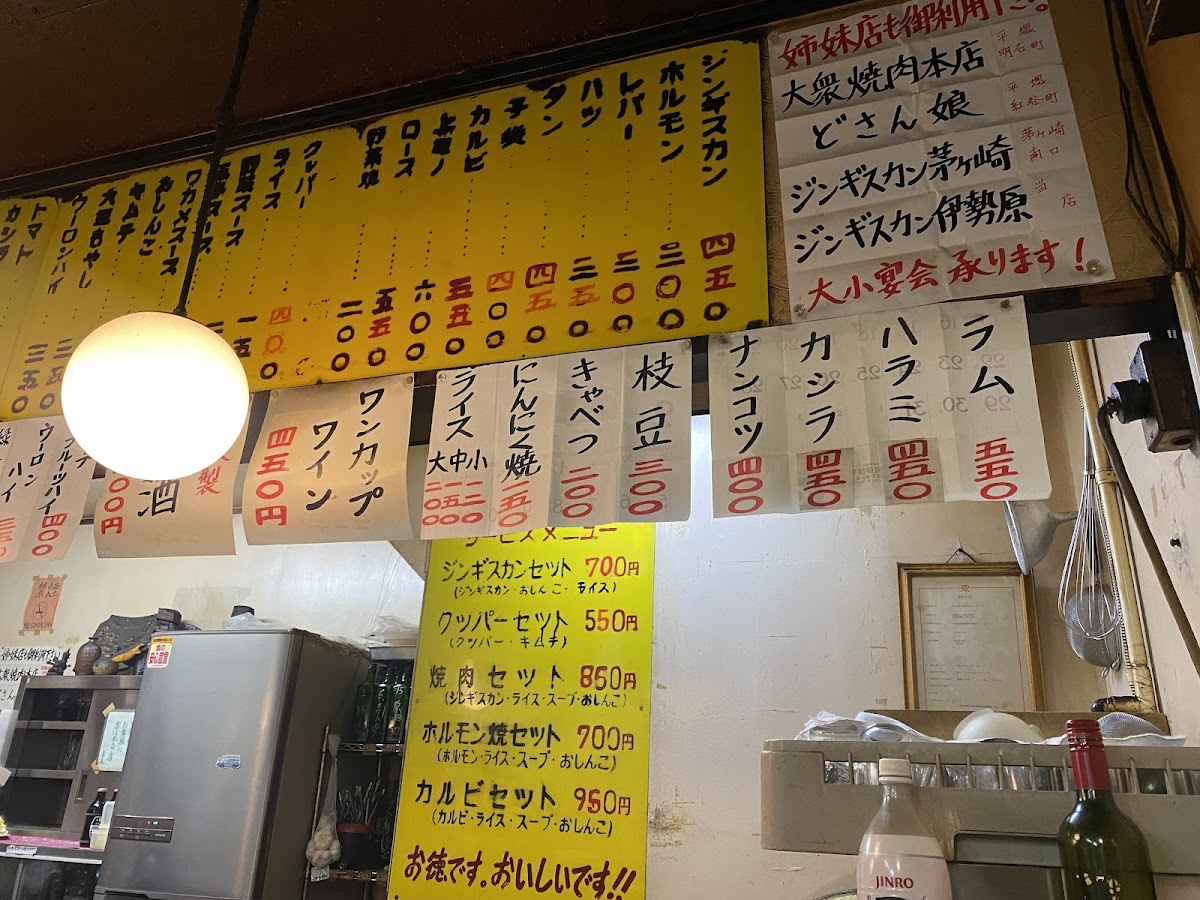 姉妹店も御利用下さい。
大衆焼肉本店 平塚 明石町
どさん娘 平塚 紅谷町
ジンギスカン茅ヶ崎 茅ヶ崎 南口
ジンギスカン伊勢原 当店
大小宴会承ります!
ジンギスカン 四五〇
ホルモン 三〇〇
レバー 三〇〇
ハツ 三五〇
タン 四五〇
子袋 四〇〇
カルビ 五五〇
上ミノ 六〇〇
ロース 五五〇
野菜焼 二〇〇
クッパー
ライス
野菜スープ
スープ
ワカメスープ
おしんこ
キムチ
大豆もやし
ウーロンハイ
トマト
カシラ
ラム 五五〇
ハラミ 四五〇
カシラ 四五〇
ナンコツ 四〇〇
枝豆 三〇〇
きゃべつ 二〇〇
にんにく焼 一五〇
ライス 大中小
ワンカップ
ワイン
四五〇円
製
酒
〇〇円
フルーツハイ
ウーロンハイ 四〇〇
ハイ
サービスメニュー
ジンギスカンセット 700円
(ジンギスカン・おしんこ・ライス)
クッパーセット 550円
(クッパー・キムチ)
焼肉セット 850円
(ジンギスカン・ライス・スープ・おしんこ)
ホルモン焼セット 700円
(ホルモン・ライス・スープ・おしんこ)
カルビセット 950円
(カルビ・ライス・スープ・おしんこ)
お徳です。おいしいです!!
JINRO